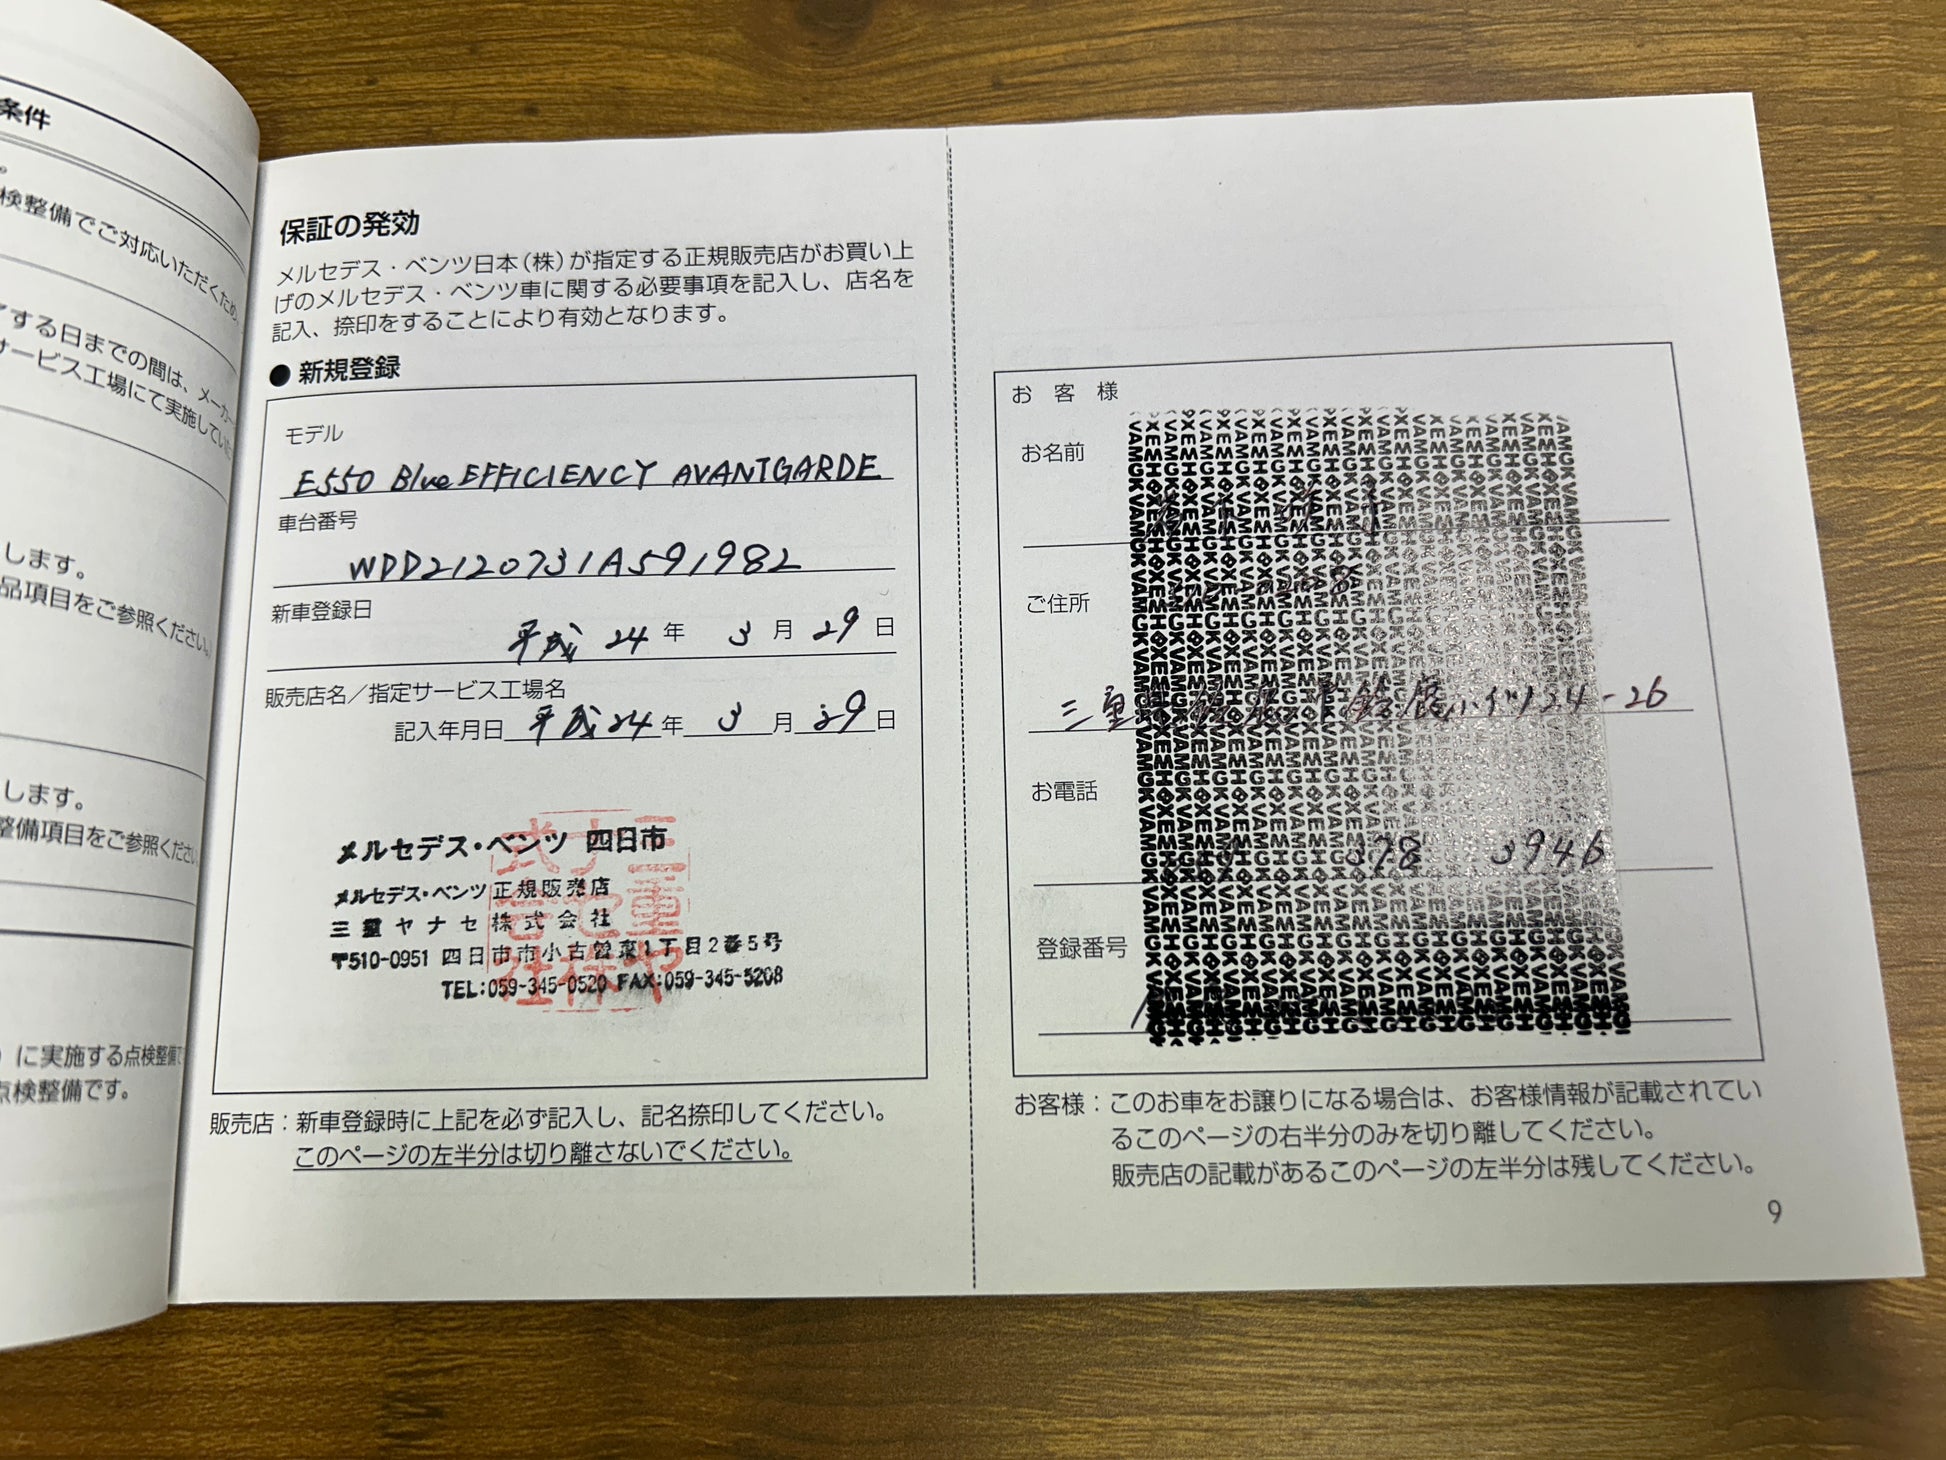 条件
検整備でご対応いただくため、
了する日までの間は、メーカー
サービス工場にて実施してい
します。
品項目をご参照ください。
します。
整備項目をご参照ください
）に実施する点検整備で
点検整備です。
保証の発効
メルセデス・ベンツ日本（株）が指定する正規販売店がお買い上
げのメルセデス・ベンツ車に関する必要事項を記入し、店名を
記入、捺印をすることにより有効となります。
●新規登録
モデル
E550 BlueEFFICIENCY AVANTGARDE
車台番号
WDD2120731A591982
新車登録日
平成 24 年 3 月 29 日
販売店名／指定サービス工場名
記入年月日 平成24 年 3 月 29 日
メルセデス・ベンツ 四日市
メルセデス・ベンツ正規販売店
三重ヤナセ株式会社
〒510-0951 四日市市小古曽東1丁目2番5号
TEL:059-345-0520 FAX:059-345-5208
三重ヤナセ株式会社
販売店：新車登録時に上記を必ず記入し、記名捺印してください。
このページの左半分は切り離さないでください。
お客様
お名前
ご住所
三重
24-26
お電話
378 3946
登録番号
お客様：このお車をお譲りになる場合は、お客様情報が記載されてい
るこのページの右半分のみを切り離してください。
販売店の記載があるこのページの左半分は残してください。
9